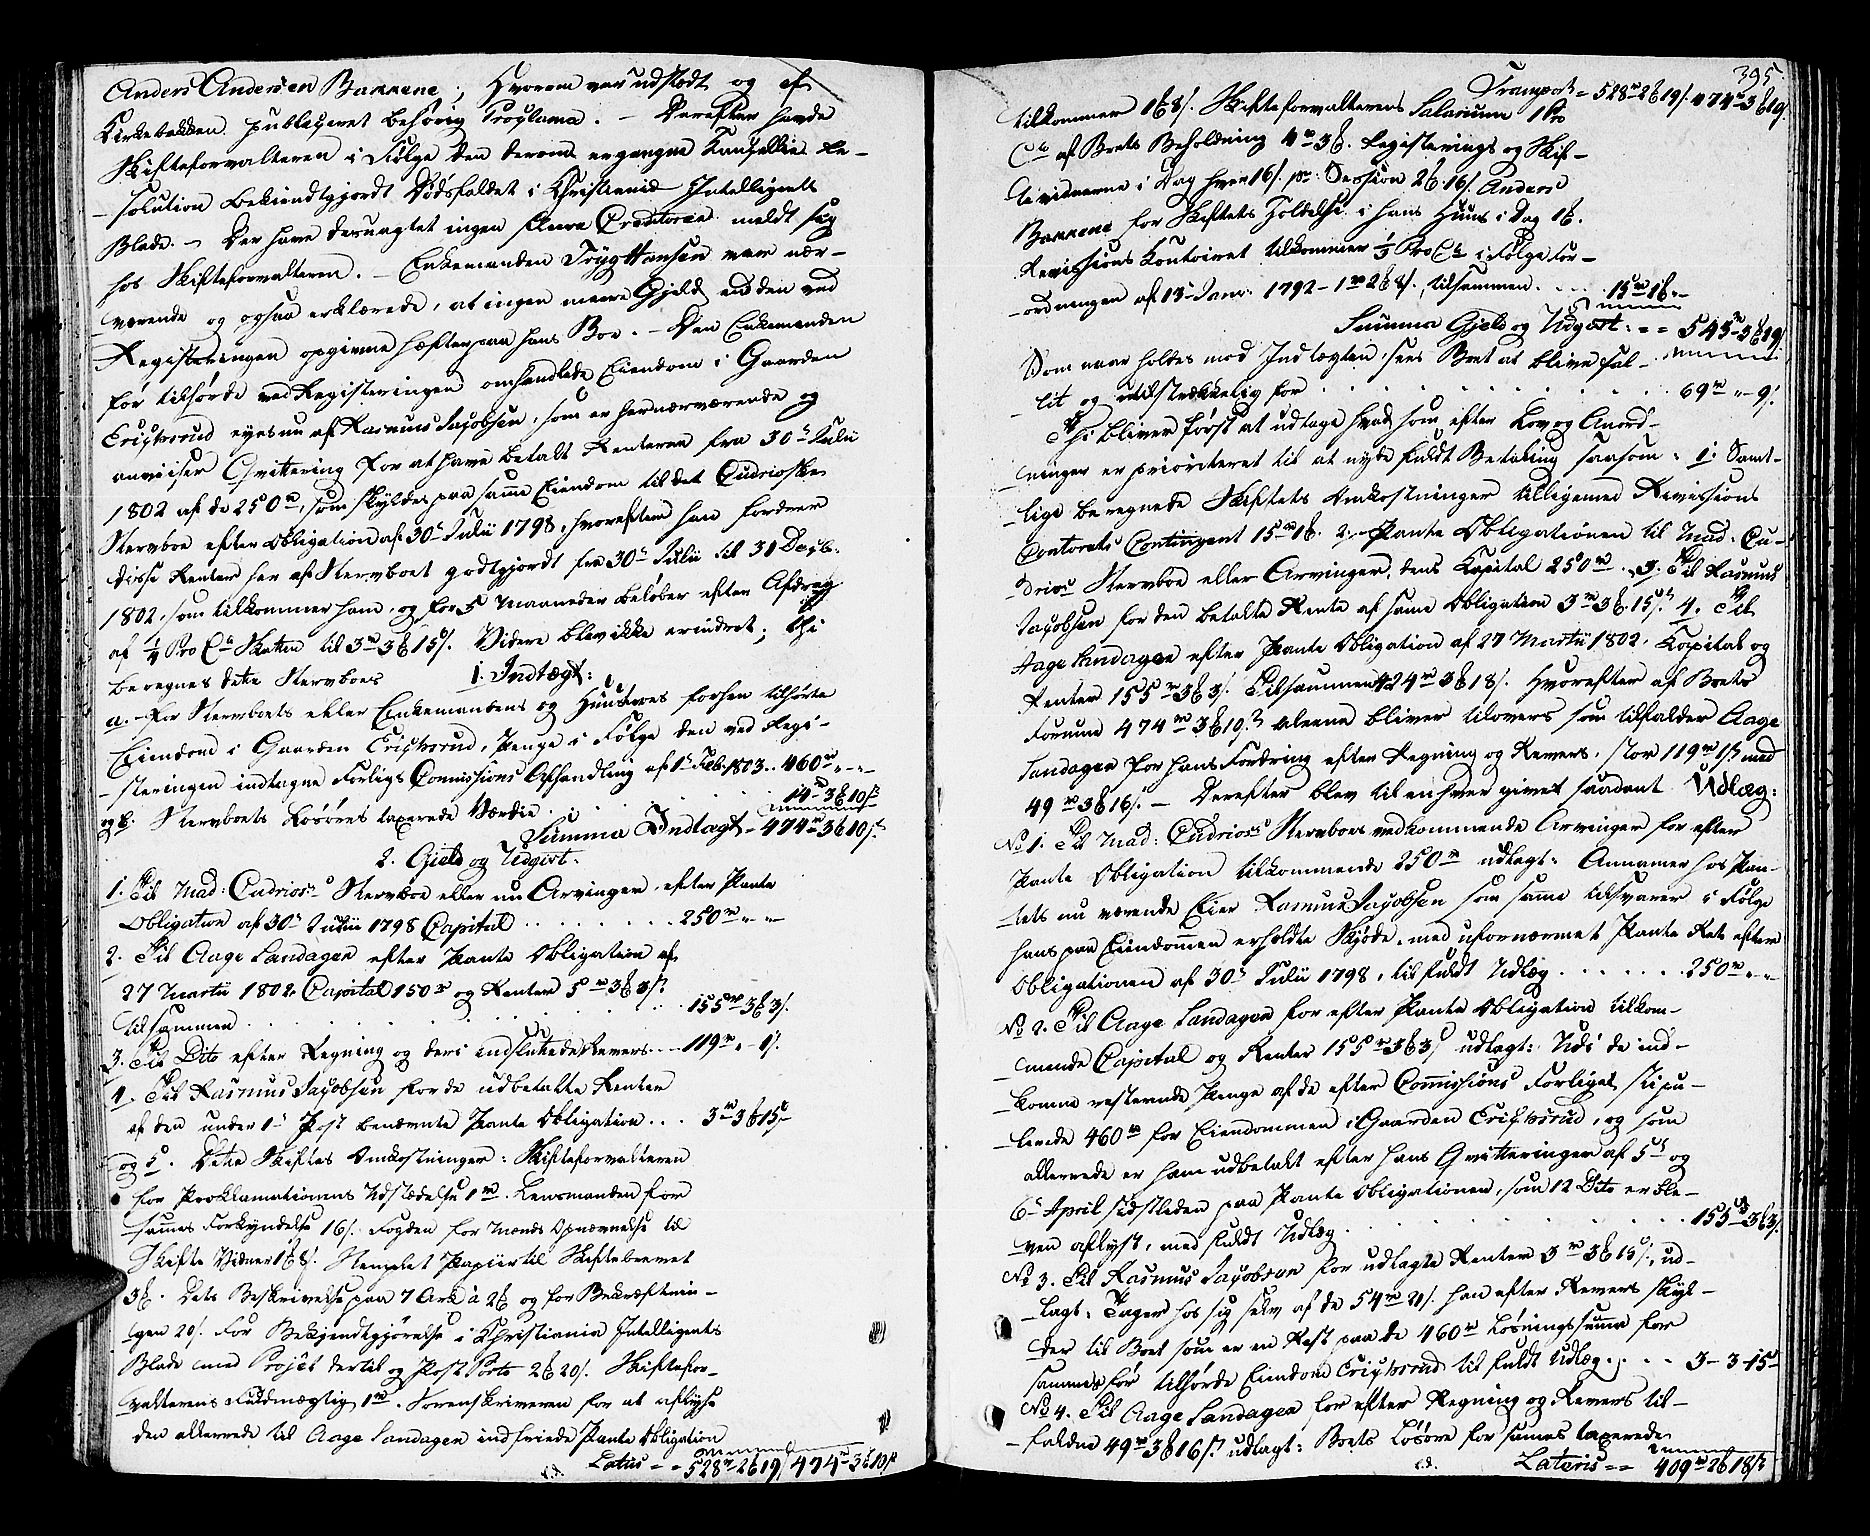 Anders Andersen Bakkene, Hvorom var udstædt og af
Kirkebakken publiceret behørig Proclama. – Derefter havde
Skifteforvalteren i Følge den derom ergangne Cancellie Re-
solution bekiendtgjordt Dødsfaldet i Christiania Intelligents
Blade. – Der have desuagtet ingen fleere Creditorer meldt sig
hos Skifteforvalteren. – Enkemanden Tryg Hansen var nær-
værende og ogsaa erklærede, at ingen meere Gield end den ved
Registeringen opgivne hæfter paa hans Boe. – Den Enkemanden
før tilhørde ved Registeringen omhandlede Eiendom i Gaarden
Erichsrud eyes nu af Rasmus Jacobsen, som er hernærværende og
anviiser Qvittering for at have betalt Renterne fra 30te Julii
1802 af de 250 rd, som skyldes paa samme Eiendom til det Cudrioske
Stervboe efter Obligation af 30te Julii 1798, hvorefter han fordrer
disse Renter her af Stervboet godtgjordt fra 30te Julii til 31 Decb.
1802, som tilkommer ham, og for 5 Maaneder beløber efter Afdrag
af 1/4 Pro Ct Skatten til 3 rd 3 ß 15 s. Videre blev ikke erindret; thi
beregnes dette Stervboes 1. Indtægt:
a. For Stervboets eller Enkemandens og Hustroes forhen tilhørte
Eiendom i Gaarden Erichsrud, Penge i Følge den ved Regi-
steringen indtagne Forligs Commissions Afhandling af 1te Feb. 1803 .. 460 rd " - "
og b. Stervboets Løsøres taxerede Værdie . . . 14 - 3 ß 10 s
Summa Indtægt - 474 rd 3 ß 10 s
2. Gield og Udgivt:
1. Til Mad: Cudrios Stervboe eller nu Arvinger, efter Pante
Obligation af 30te Julii 1798 Capital . . . 250 rd " - "
2. Til Aage Sandagen efter Pante Obligation af
27 Martii 1802, Capital 150 rd og Renter 5 rd 3 ß 3 s
tilsammen . . . 155 rd 3 ß 3 s
3. Til Dito efter Regning og deri indsluttede Revers ... 119 rd " - 1 s
4. Til Rasmus Jacobsen for de udbetalte Renter
af den under 1te Post benævnte Pante Obligation ... 3 rd 3 ß 15 s
og 5. Dette Skiftes Omkostninger: Skifteforvalteren
for Proklamationens Udstædelse 1 rd. Lensmanden for
sammes Forkyndelse 16 s. Fogden for Mænds Opnævnelse til
Skifte Vidner 1 ß 8 s. Stemplet Papiir til Skiftebrevet
3 ß. Dets Beskrivelse paa 7 Ark à 2 ß og for Bekræftnin-
gen 20 s. For Bekjendtgjørelse i Christiania Intelligents
Blade med dertil og Post Porto 2 ß 20 s. Skiftefor-
valterens Fuldmægtig 1 rd. Sorenskriveren for at aflyse
den allerede til Aage Sandagen indfriede Pante Obligation
Latus - - 528 rd 2 ß 19 s 474 rd 3 ß 10 s
395
Transport - 528 rd 2 ß 19 s. 474 rd 3 ß 10 s
tilkommer 1 ß 8 s. Skifteforvalterens Salarium 1 Pro
Ct af Boets Beholdning 4 rd 3 ß. Registerings og Skif-
tevidnerne i Dag hver 16 s. pr: Session 2 ß 16 s Anders
Bakkene for Skiftets Holdelse i hans Huus i Dag 1 ß.
Revissions Contoiret tilkommer 1/3 Pro Ct i Følge For-
ordningen af 13. Janv. 1792 - 1 rd 2 ß 8 s, tilsammen . . . 15 rd 1 ß "
Summa Gield og Udgivt: - - 543 rd 3 ß 19 s
Som naar holdes mod Indtægten, sees Boet at blive fal-
lit og utilstrækkelig for . . . 69 rd " - 9 s
Thi bliver først at udtage hvad som efter Lov og Anord-
ninger er prioriteret til at nyde fuldt Betaling saasom: 1. Samt-
lige beregnede Skiftets Omkostninger tilligemed Revissions
Contorets Contingent 15 rd 1 ß. 2. Pante Obligationen til Mad: Cu-
drios Stervboe eller Arvinger, dens Capital 250 rd. 3. Til Rasmus
Jacobsen for den betalte Rente af samme Obligation 3 rd 3 ß 15 s. 4. Til
Aage Sandagen efter Pante Obligation af 27 Martii 1802, Capital og
Renter 155 rd 3 ß 3 s. Tilsammen 424 rd 3 ß 18 s. Hvorefter af Boets
Formue 474 rd 3 ß 10 s alene bliver tilovers som tilfalder Aage
Sandagen for hans Fordring efter Regning og Revers, stor 119 rd 1 s med
49 rd 3 ß 16 s. – Derefter blev til enhver givet saadant Udlæg:
No 1. Til Mad: Cudrios Stervboes vedkommende Arvinger for efter
Pante Obligation tilkommende 250 rd udlagt: Annamer hos Pan-
tets nu værende Eier Rasmus Jacobsen som samme tilsvarer i Følge
hans paa Eiendommen erholdte Skjøde, med ufornærmet Pante Ret efter
Obligationen af 30te Julii 1798, til fuldt Udlæg . . . 250 rd " - "
No 2. Til Aage Sandagen for efter Pante Obligation tilkom-
mende Capital og Renter 155 rd 3 ß 3 s udlagt: Udi de ind-
komne resterende Penge af de efter Commissions Forliget stipu-
lerede 460 rd for Eiendommen i Gaarden Erichsrud, og som
allerede er ham udbetalt efter hans Qvitteringer af 5te og
6te April sidstleden paa Pante Obligationen, som 12 Dito er ble-
ven aflyst, med fuldt Udlæg . . . 155 rd 3 ß 3 s
No 3. Til Rasmus Jacobsen for udlagte Renter 3 rd 3 ß 15 s, ud-
lagt: Tager hos sig selv af de 54 rd 21 s. han efter Revers skyl-
der til Boet som er en Rest paa de 460 rd Løsningssumma for
sammes før tilhørde Eiendom Erichsrud til fuldt Udlæg . . . 3 - 3 - 15 -
No 4. Til Aage Sandagen for efter Regning og Revers til-
faldne 49 rd 3 ß 16 s udlagt: Boets Løsøre for sammes taxerede
Lateris - - 409 rd 2 ß 18 s